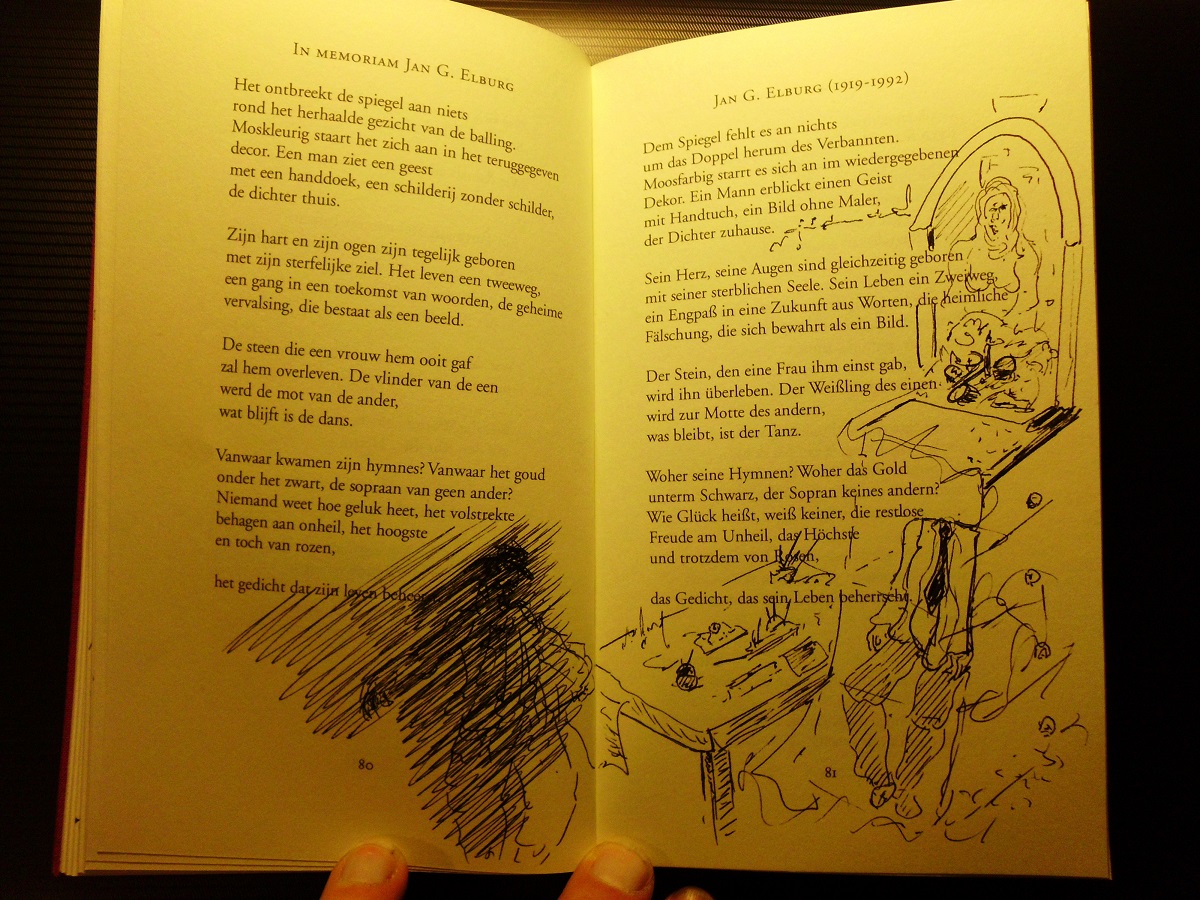 In memoriam Jan G. Elburg
Het ontbreekt de spiegel aan niets
rond het herhaalde gezicht van de balling.
Moskleurig staart het zich aan in het teruggegeven
decor. Een man ziet een geest
met een handdoek, een schilderij zonder schilder,
de dichter thuis.
Zijn hart en zijn ogen zijn tegelijk geboren
met zijn sterfelijke ziel. Het leven een tweeweg,
een gang in een toekomst van woorden, de geheime
vervalsing, die bestaat als een beeld.
De steen die een vrouw hem ooit gaf
zal hem overleven. De vlinder van de een
werd de mot van de ander,
wat blijft is de dans.
Vanwaar kwamen zijn hymnes? Vanwaar het goud
onder het zwart, de sopraan van geen ander?
Niemand weet hoe geluk heet, het volstrekte
behagen aan onheil, het hoogste
en toch van rozen,
het gedicht dat zijn leven
80
Jan G. Elburg (1919-1992)
Dem Spiegel fehlt es an nichts
um das Doppel herum des Verbannten.
Moosfarbig starrt es sich an im wiedergegebenen
Dekor. Ein Mann erblickt einen Geist
mit Handtuch, ein Bild ohne Maler,
der Dichter zuhause.
Sein Herz, seine Augen sind gleichzeitig geboren
mit seiner sterblichen Seele. Sein Leben ein Zweiweg,
ein Engpaß in eine Zukunft aus Worten, die heimliche
Fälschung, die sich bewahrt als ein Bild.
Der Stein, den eine Frau ihm einst gab,
wird ihn überleben. Der Weißling des einen
wird zur Motte des andern,
was bleibt, ist der Tanz.
Woher seine Hymnen? Woher das Gold
unterm Schwarz, der Sopran keines andern?
Wie Glück heißt, weiß keiner, die restlose
Freude am Unheil, das Höchste
und trotzdem von Rosen,
das Gedicht, das sein Leben beherrscht.
81